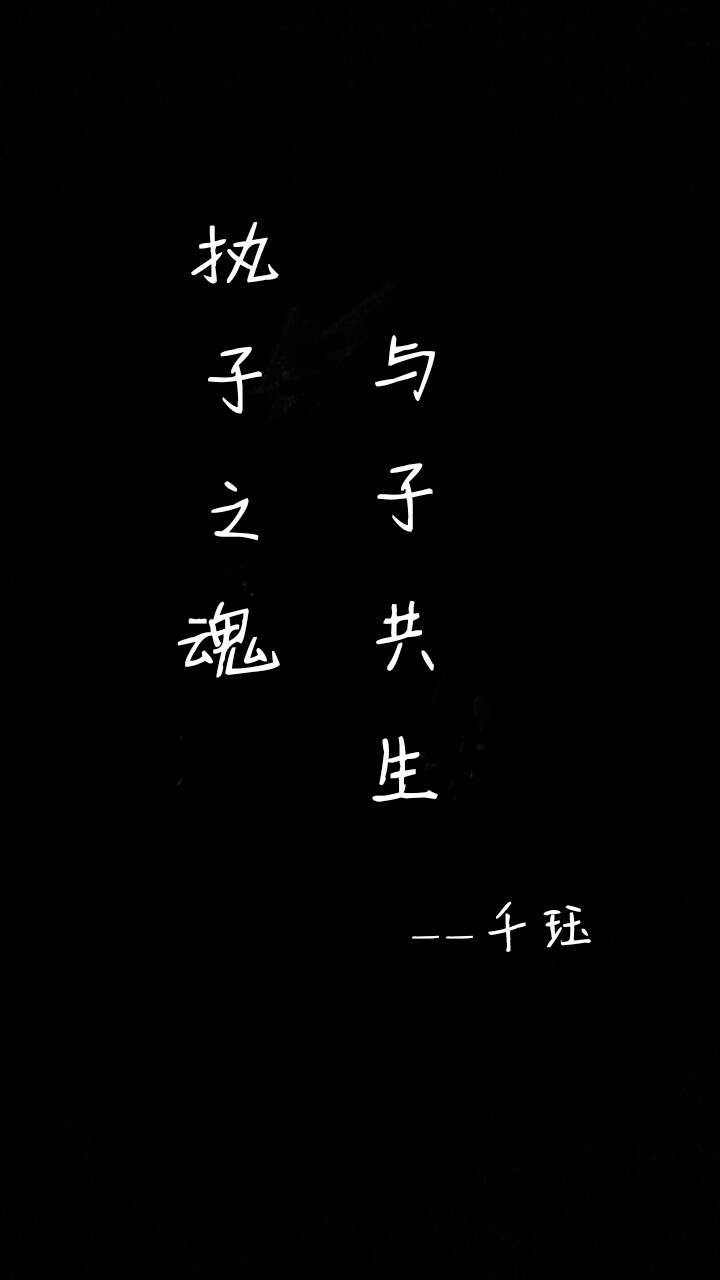 执子之魂
与子共生
——千珏